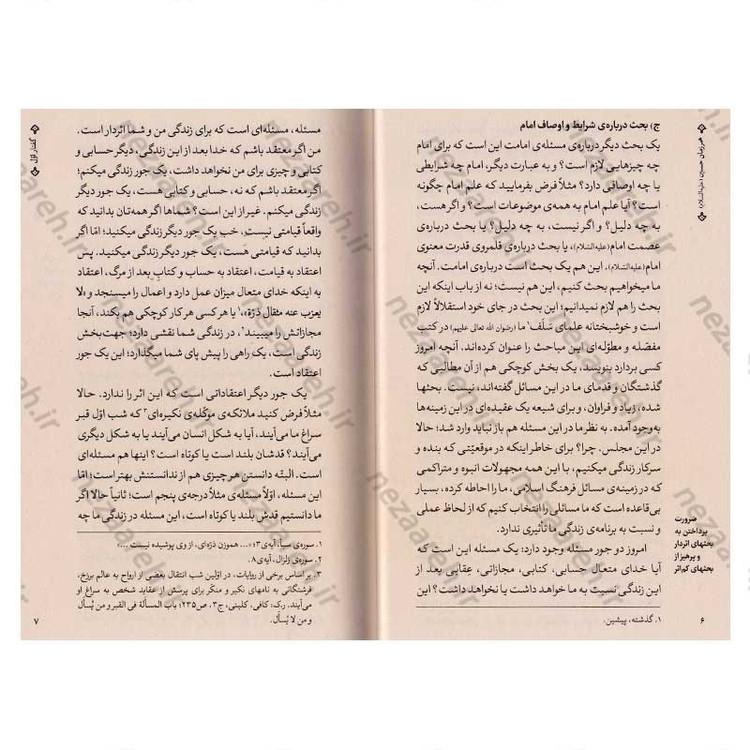 همرزمان حسین (علیه‌السّلام)
ج) بحث درباره‌ی شرایط و اوصاف امام
یک بحث دیگر درباره‌ی مسئله‌ی امامت این است که برای امام
چه چیزهایی لازم است؟ و به عبارت دیگر، امام چه شرایطی
یا چه اوصافی دارد؟ مثلاً فرض بفرمایید که علم امام چگونه
است؟ آیا علم امام به همه‌ی موضوعات است؟ و اگر هست،
به چه دلیل؟ و اگر نیست، به چه دلیل؟ یا بحث درباره‌ی
عصمت امام (علیه‌السّلام)، یا بحث درباره‌ی قلمروی قدرت معنوی
امام (علیه‌السّلام)، این هم یک بحث است درباره‌ی امامت. آنچه
ما میخواهیم بحث کنیم، این هم نیست؛ نه از باب اینکه این
بحث را هم لازم نمیدانیم؛ این بحث در جای خود استقلالاً لازم
است و خوشبختانه علمای سَلَف۱ ما (رضوان الله تعالی علیهم) در کتب
مفصّله و مطوّله‌ای این مباحث را عنوان کرده‌اند. آنچه امروز
کسی بردارد بنویسد، یک بخش کوچکی هم از آن مطالبی که
گذشتگان و قدمای ما در این مسائل گفته‌اند، نیست. بحثها
شده، زیاد و فراوان، و برای شیعه یک عقیده‌ای در این زمینه‌ها
به‌وجود آمده. به نظر ما در این مسئله هم باز نباید وارد شد؛ حالا
در این مجلس. چرا؟ برای خاطر اینکه در موقعیّتی که بنده و
سرکار زندگی میکنیم، با این همه مجهولات انبوه و متراکمی
که در زمینه‌ی مسائل فرهنگ اسلامی، ما را احاطه کرده، بسیار
بی‌قاعده است که ما مسائلی را انتخاب کنیم که از لحاظ عملی
و نسبت به برنامه‌ی زندگی ما تأثیری ندارد.
ضرورت
پرداختن به
بحثهای اثردار
و پرهیز از
بحثهای کم‌اثر
امروز دو جور مسئله وجود دارد؛ یک مسئله این است که
آیا خدای متعال حسابی، کتابی، مجازاتی، عِقابی بعد از
این زندگی نسبت به ما خواهد داشت یا نخواهد داشت؟ این
۱. گذشته، پیشین.
۶
گفتار اوّل
مسئله، مسئله‌ای است که برای زندگی من و شما اثردار است.
من اگر معتقد باشم که خدا بعد از این زندگی، دیگر حسابی و
کتابی و چیزی برای من نخواهد داشت، یک جور زندگی میکنم؛
اگر معتقد باشم که نه، حسابی و کتابی هست، یک جور دیگر
زندگی میکنم. غیر از این است؟ شماها اگر همه‌تان بدانید که
واقعاً قیامتی نیست، خب یک جور دیگر زندگی میکنید؛ امّا اگر
بدانید که قیامتی هست، یک جور دیگر زندگی میکنید. پس
اعتقاد به قیامت، اعتقاد به حساب و کتابِ بعد از مرگ، اعتقاد
به اینکه خدای متعال میزان عمل دارد و اعمال را میسنجد و «لا
یعزب عنه مثقال ذَرّة»،۱ یا هر کسی هر کار کوچکی هم بکند، آنجا
مجازاتش را میبیند۲، در زندگی شما نقشی دارد؛ جهت‌بخش
زندگی است، یک راهی را پیش پای شما میگذارد؛ این یک جور
اعتقاد است.
یک جور دیگر اعتقاداتی است که این اثر را ندارد. حالا
مثلاً فرض کنید ملائکه‌ی موکّله‌ی نکیره‌ای۳ که شب اوّل قبر
سراغ ما می‌آیند، آیا به شکل انسان می‌آیند یا به شکل دیگری
می‌آیند؟ قدشان بلند است یا کوتاه است؟ اینها هم مسئله‌ای
است. البتّه دانستن هر چیزی هم از ندانستنش بهتر است؛ امّا
این مسئله، اوّلاً مسئله‌ی مثلاً درجه‌ی پنجم است؛ ثانیاً حالا اگر
ما دانستیم قدش بلند یا کوتاه است، این مسئله در زندگی ما چه
۱. سوره‌ی سبأ، آیه‌ی ۳؛ «... هموزن ذرّه‌ای، از وی پوشیده نیست ...»
۲. سوره‌ی زلزال، آیه‌ی ۸.
۳. بر اساس برخی از روایات، در اوّلین شب انتقال بعضی از ارواح به عالم برزخ،
فرشتگانی به نامهای نکیر و منکَر برای پرسش از عقاید شخص به سراغ او
می‌آیند. ر.ک: کافی، کلینی، ج۳، ص۲۳۵؛ باب المسألة فی القبر و من یُسأل
و من لا یُسأل.
۷
nezaareh.ir